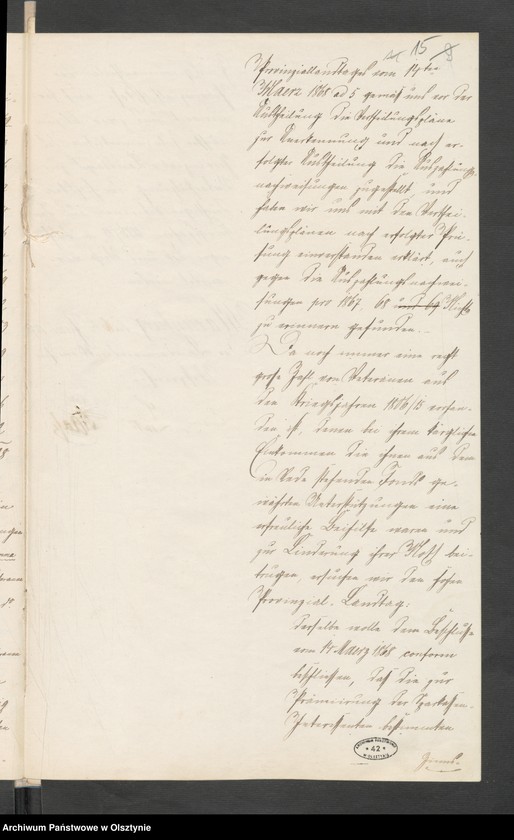 15
Provinziallandtages vom 14ten
Maerz 1868 ad 5 gemäß uns vor der
Austheilung die Vertheilungspläne
zur Anerkennung und nach er-
folgter Austheilung die Auszahlungs-
nachweisungen zugestellt und
haben wir uns mit den Verthei-
lungsplänen nach erfolgter Prü-
fung einverstanden erklärt, auch
gegen die Auszahlungsnachwei-
sungen pro 1867 68 und 69 Nichts
zu erinnern gefunden.
Da noch immer eine recht
große Zahl von Veteranen aus
den Kriegsjahren 1806/15 vorhan-
den ist, denen bei ihrem kärglichen
Einkommen die ihnen aus dem
in Rede stehenden Fonds ge-
währten Unterstützungen eine
erfreuliche Beihilfe waren und
zur Linderung ihrer Noth bei-
trugen, ersuchen wir den hohen
Provinzial-Landtag:
derselbe wolle dem Beschlusse
vom 14 Maerz 1868 conform
beschliessen, daß die zur
Prämiirung der Sparkassen-
Interessenten bestimmten
ARCHIWUM PAŃSTWOWE
* 42 *
W OLSZTYNIE
Archiwum Państwowe w Olsztynie